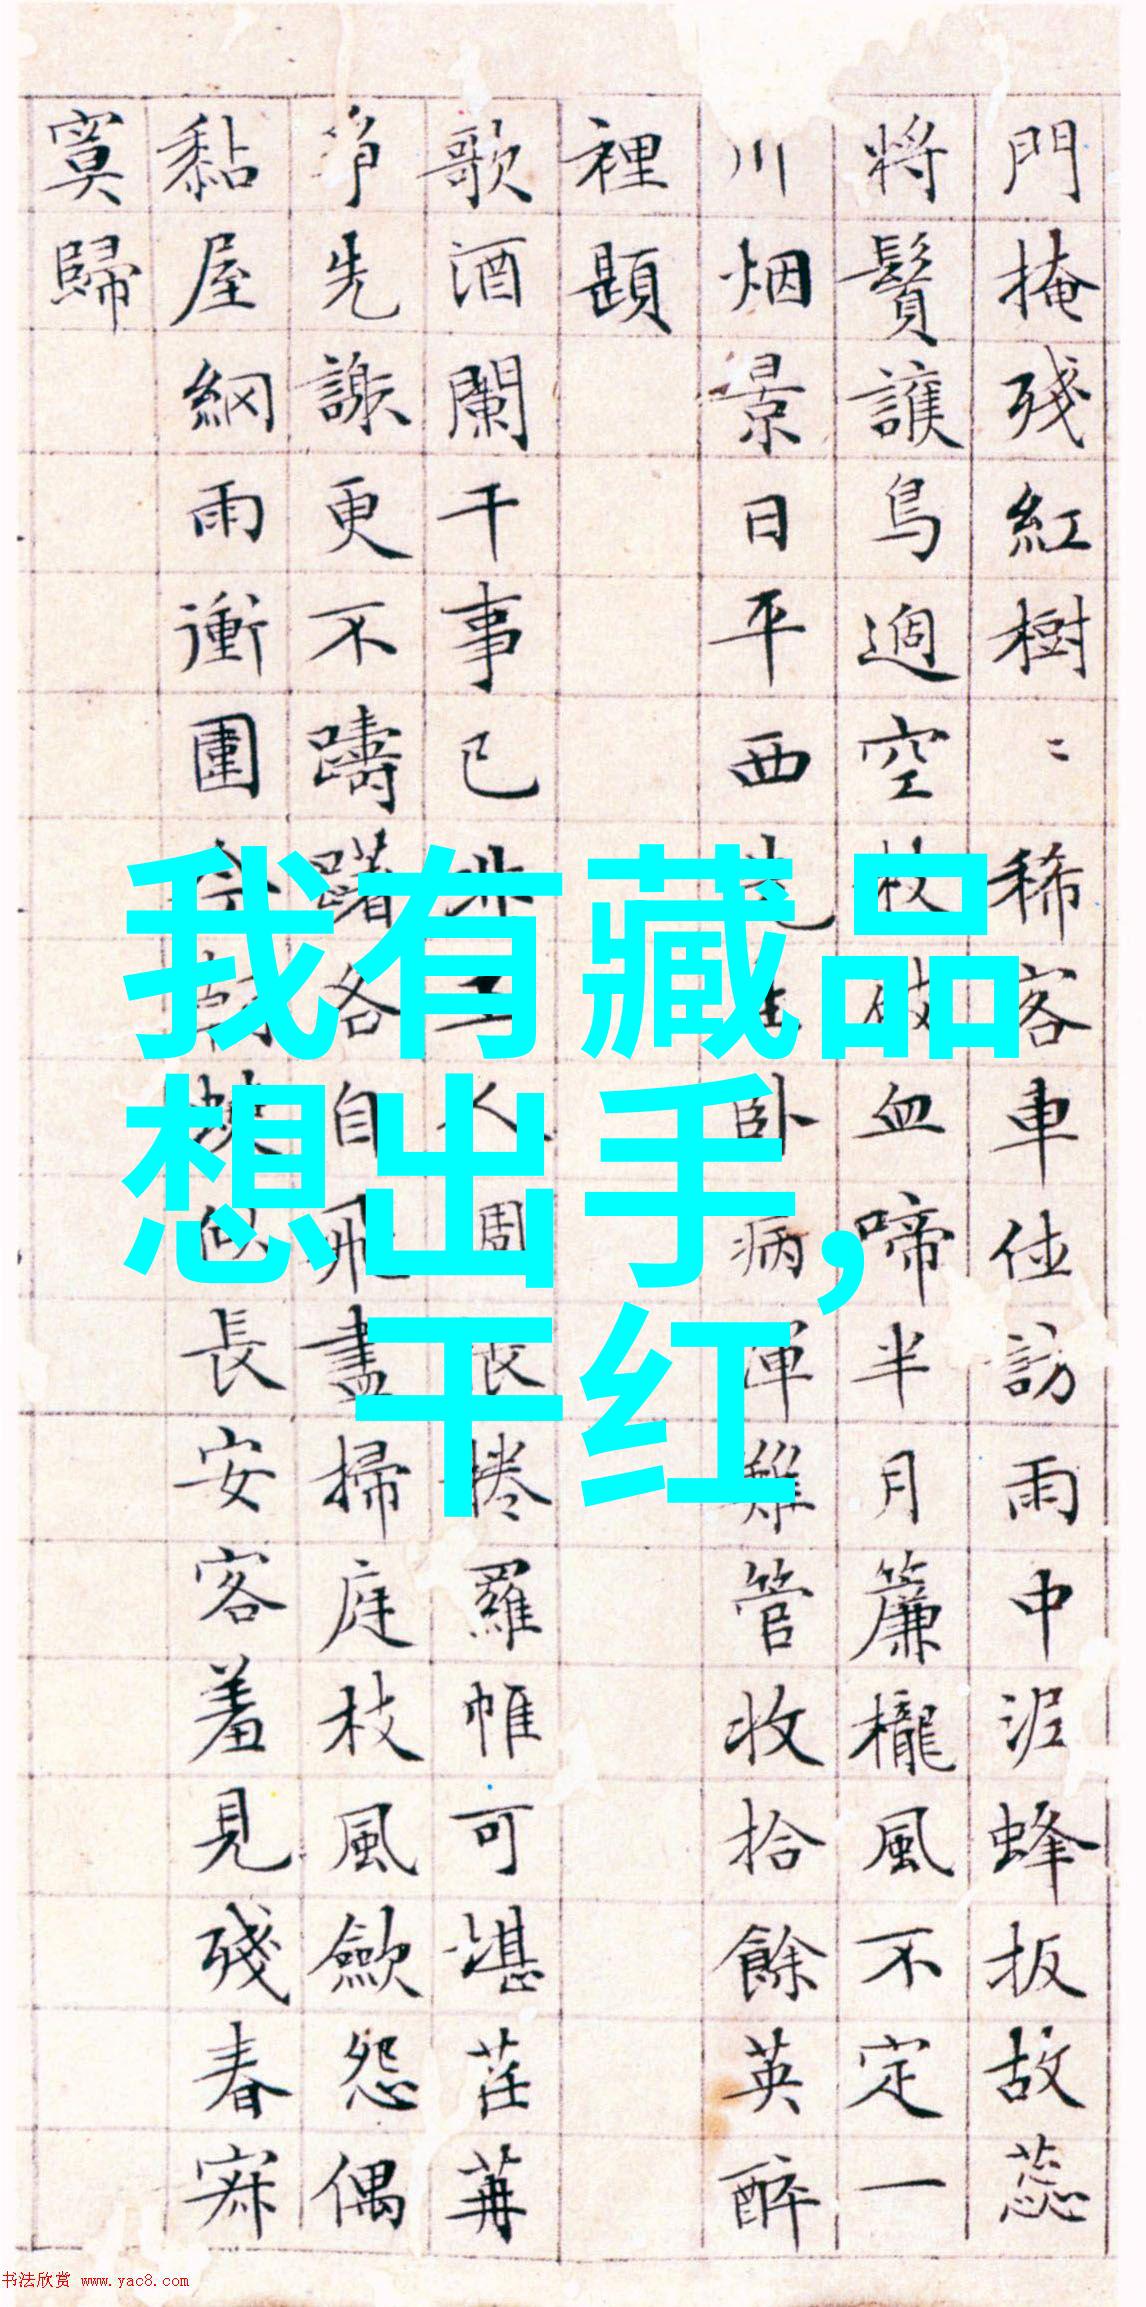 門掩殘紅樹〻稀客車訪雨中泥蜂扳故蕊
將鬚護鳥過空枝血啼半月簾櫳風不定一
川烟景日平西卧病渾難管收拾餘英醉
裡題
歌酒闌干事已非人周捲羅帷可堪苒
爭先謝更不躊躇各自飛盡掃庭枝風歛怨偶
黏屋網雨衝圍似長安客羞見殘春寂
寞歸
我有藏品
想出手,
干红
书法欣赏 www.yac8.com